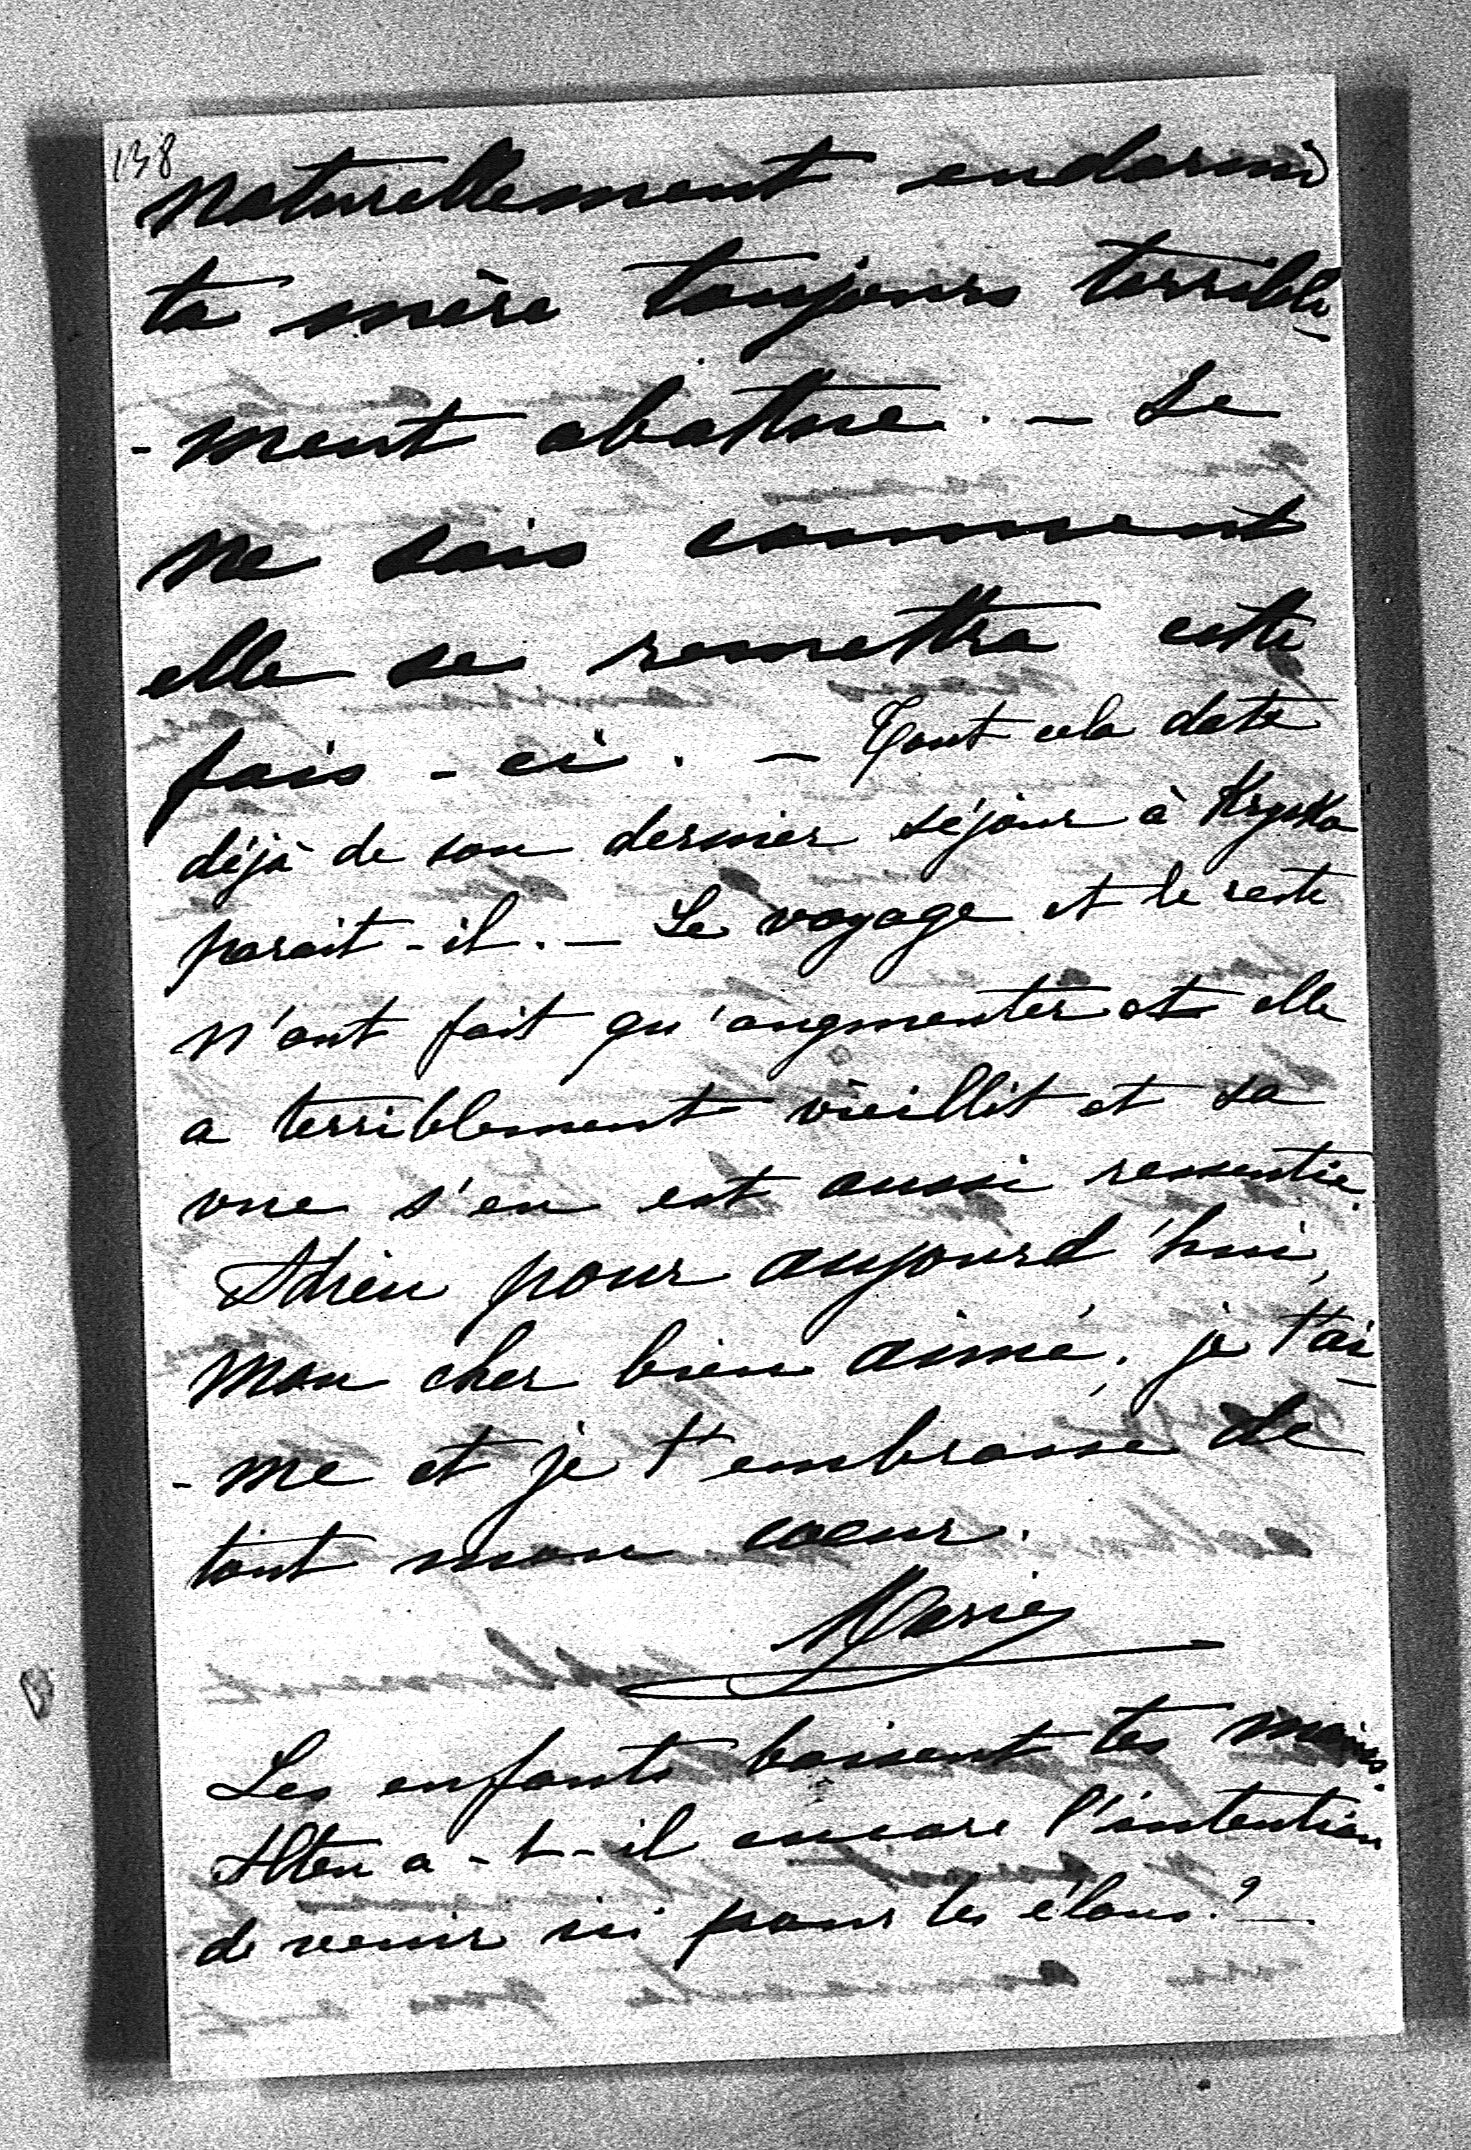 138
naturellement endormi
ta mère toujours terrible
- ment abattue. — Je
ne sais comment
elle se remettra cette
fois - ci. — Tout cela date
déjà de son dernier séjour à
parait - il. — Le voyage et le reste
n'ont fait qu'augmenter et elle
a terriblement vieillit et sa
vue s'en est aussi ressentie.
Adieu pour aujourd'hui,
mon cher bien aimé, je t'ai
- me et je t'embrasse de
tout mon coeur.
Marie
Les enfants baisent tes mains.
Alten a - t - il encore l'intention
de venir ici pour les élans? —